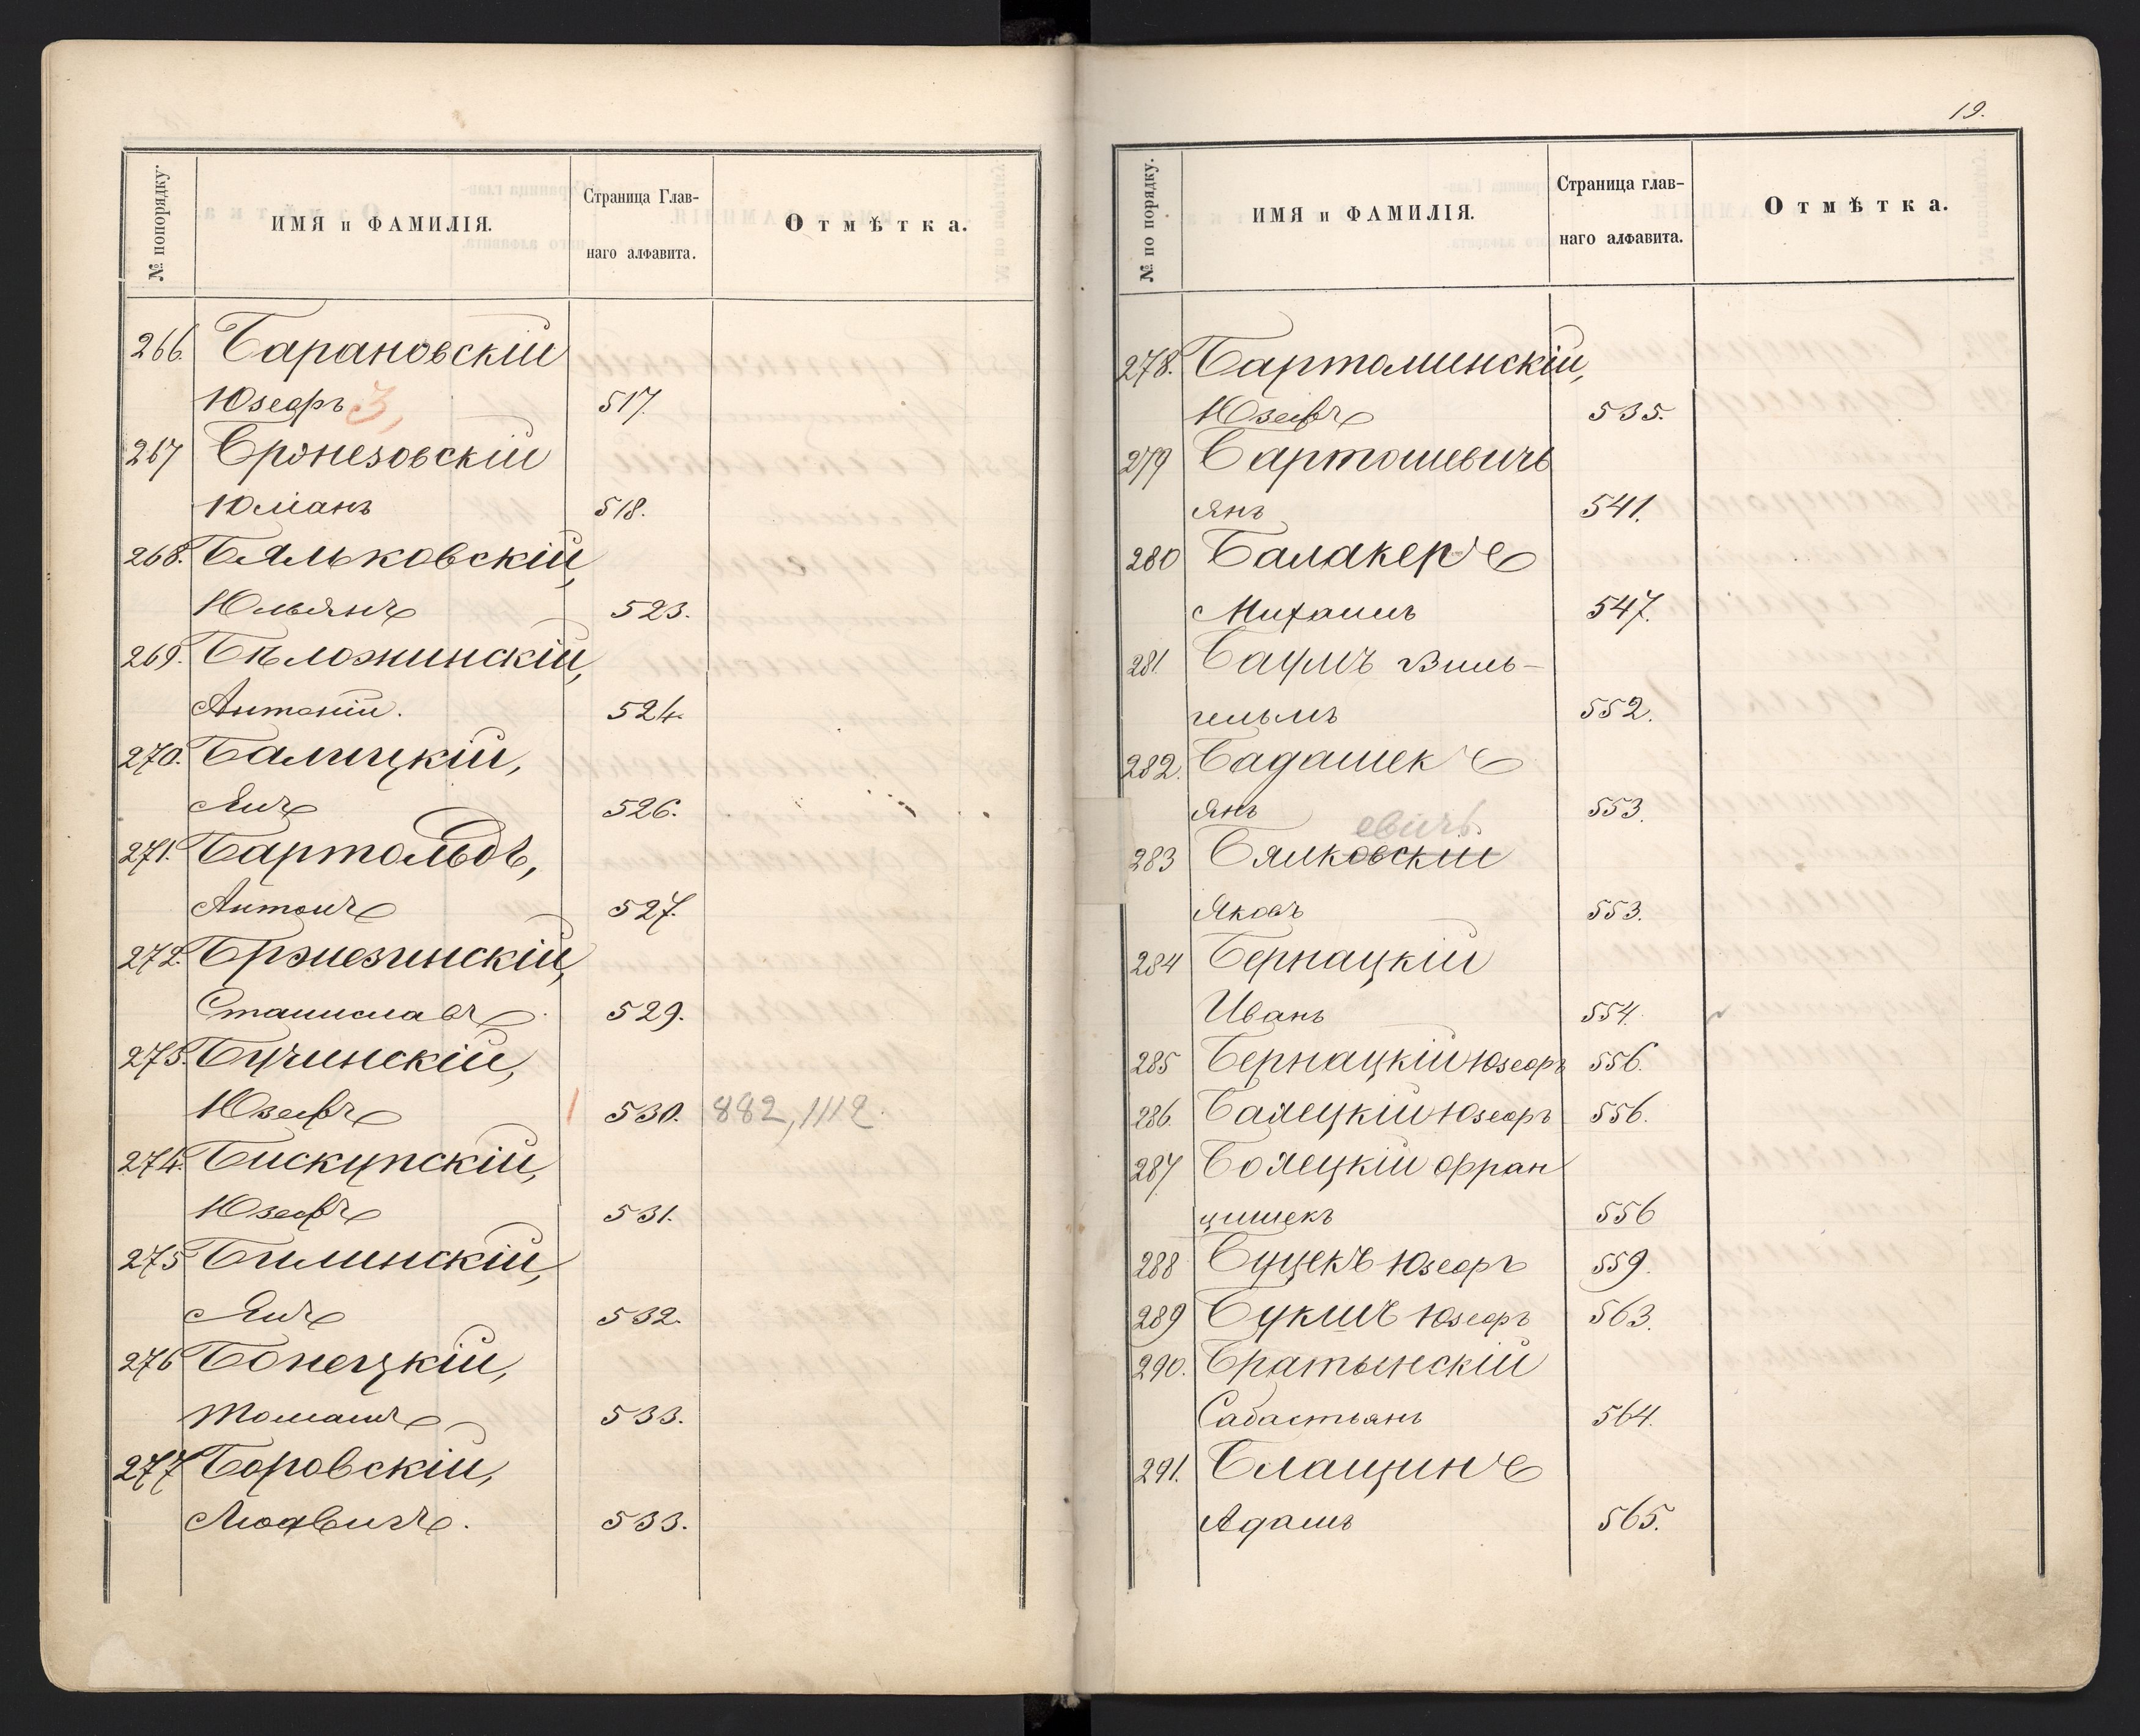 № попорядку.
ИМЯ и ФАМИЛІЯ.
Страница Глав-
наго алфавита.
Отмѣтка.
266. Барановскій
Юзефъ 3, 517.
267 Бронезовскій
Юліанъ 518.
268. Бяльковскій,
Юльянъ 523.
269. Бѣложинскій,
Антоній. 524.
270. Балицкій,
Янъ 526.
271. Бартольдъ,
Антонъ 527.
272. Бржезинскій,
Станиславъ 529.
273. Бучинскій,
Юзефъ 530. 882, 1112.
274. Бискупскій,
Юзефъ 531.
275 Билинскій,
Янъ 532.
276 Бонецкій,
Томашъ 533.
277 Боровскій,
Людвигъ. 533.
19.
№ по порядку.
ИМЯ и ФАМИЛІЯ.
Страница глав-
наго алфавита.
Отмѣтка.
278. Бартоминскій,
Юзефъ 535.
279 Бартошевичъ
янъ 541.
280 Балакеръ
Михаилъ 547.
281 Баумъ Виль-
гельмъ 552.
282. Бадашекъ
янъ 553.
евичъ
283 Бялковскій
Яковъ 553.
284 Бернацкій
Иванъ 554.
285 Бернацкій Юзефъ 556.
286. Балецкій Юзефъ 556.
287 Болецкій Фран
цишекъ 556
288 Буцекъ Юзефъ 559.
289 Букшъ Юзефъ 563.
290. Братынскій
Сабастьянъ 564.
291. Блащинъ
Адамъ 565.